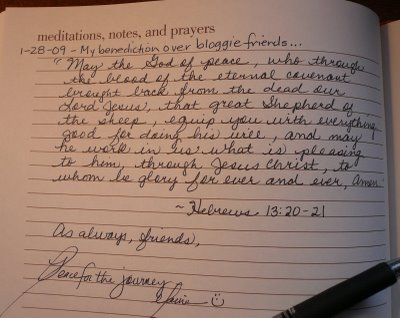 meditations, notes, and prayers
1-28-09 - My benediction over bloggie friends...
"May the God of peace, who through
the blood of the eternal covenant
brought back from the dead our
Lord Jesus, that great Shepherd of
the sheep, equip you with everything
good for doing his will, and may
he work in us what is pleasing
to him, through Jesus Christ, to
whom be glory for ever and ever, Amen."
~ Hebrews 13:20-21
As always, friends,
Peace for the journey